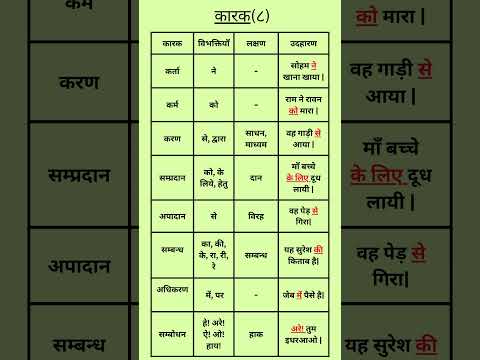 कारक(८)
कारक विभक्तियाँ लक्षण उदहारण
कर्ता ने - सोहम ने
खाना खाया |
कर्म को - राम ने रावन
को मारा |
करण से, द्वारा साधन,
माध्यम वह गाड़ी से
आया |
सम्प्रदान को, के
लिये, हेतु दान माँ बच्चे
के लिए दूध
लायी |
अपादान से विरह वह पेड़ से
गिरा|
सम्बन्ध का, की,
के, रा, री,
रे सम्बन्ध यह सुरेश की
किताब है|
अधिकरण में, पर - जेब में पैसे है|
सम्बोधन हे! अरे!
ऐ! ओ!
हाय! हाक अरे! तुम
इधरआओ |
कर्म
करण
सम्प्रदान
अपादान
सम्बन्ध
को मारा |
वह गाड़ी से
आया |
माँ बच्चे
के लिए दूध
लायी |
वह पेड़ से
गिरा|
यह सुरेश की